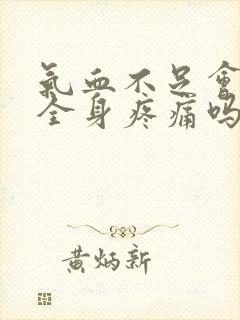 氣血不足會
全身疼痛嗎
黄炳新